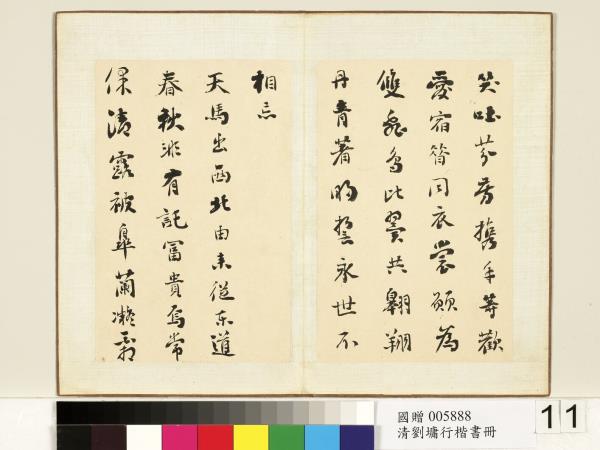 笑吐芬芳攜手等歡
愛宿昔同衣裳願為
雙飛鳥比翼共翱翔
丹青著明誓永世不
相忘
天馬出西北由來從東道
春秋非有託富貴焉常
保清露被皐蘭凝霜
國贈 005888
清劉墉行楷書冊
11